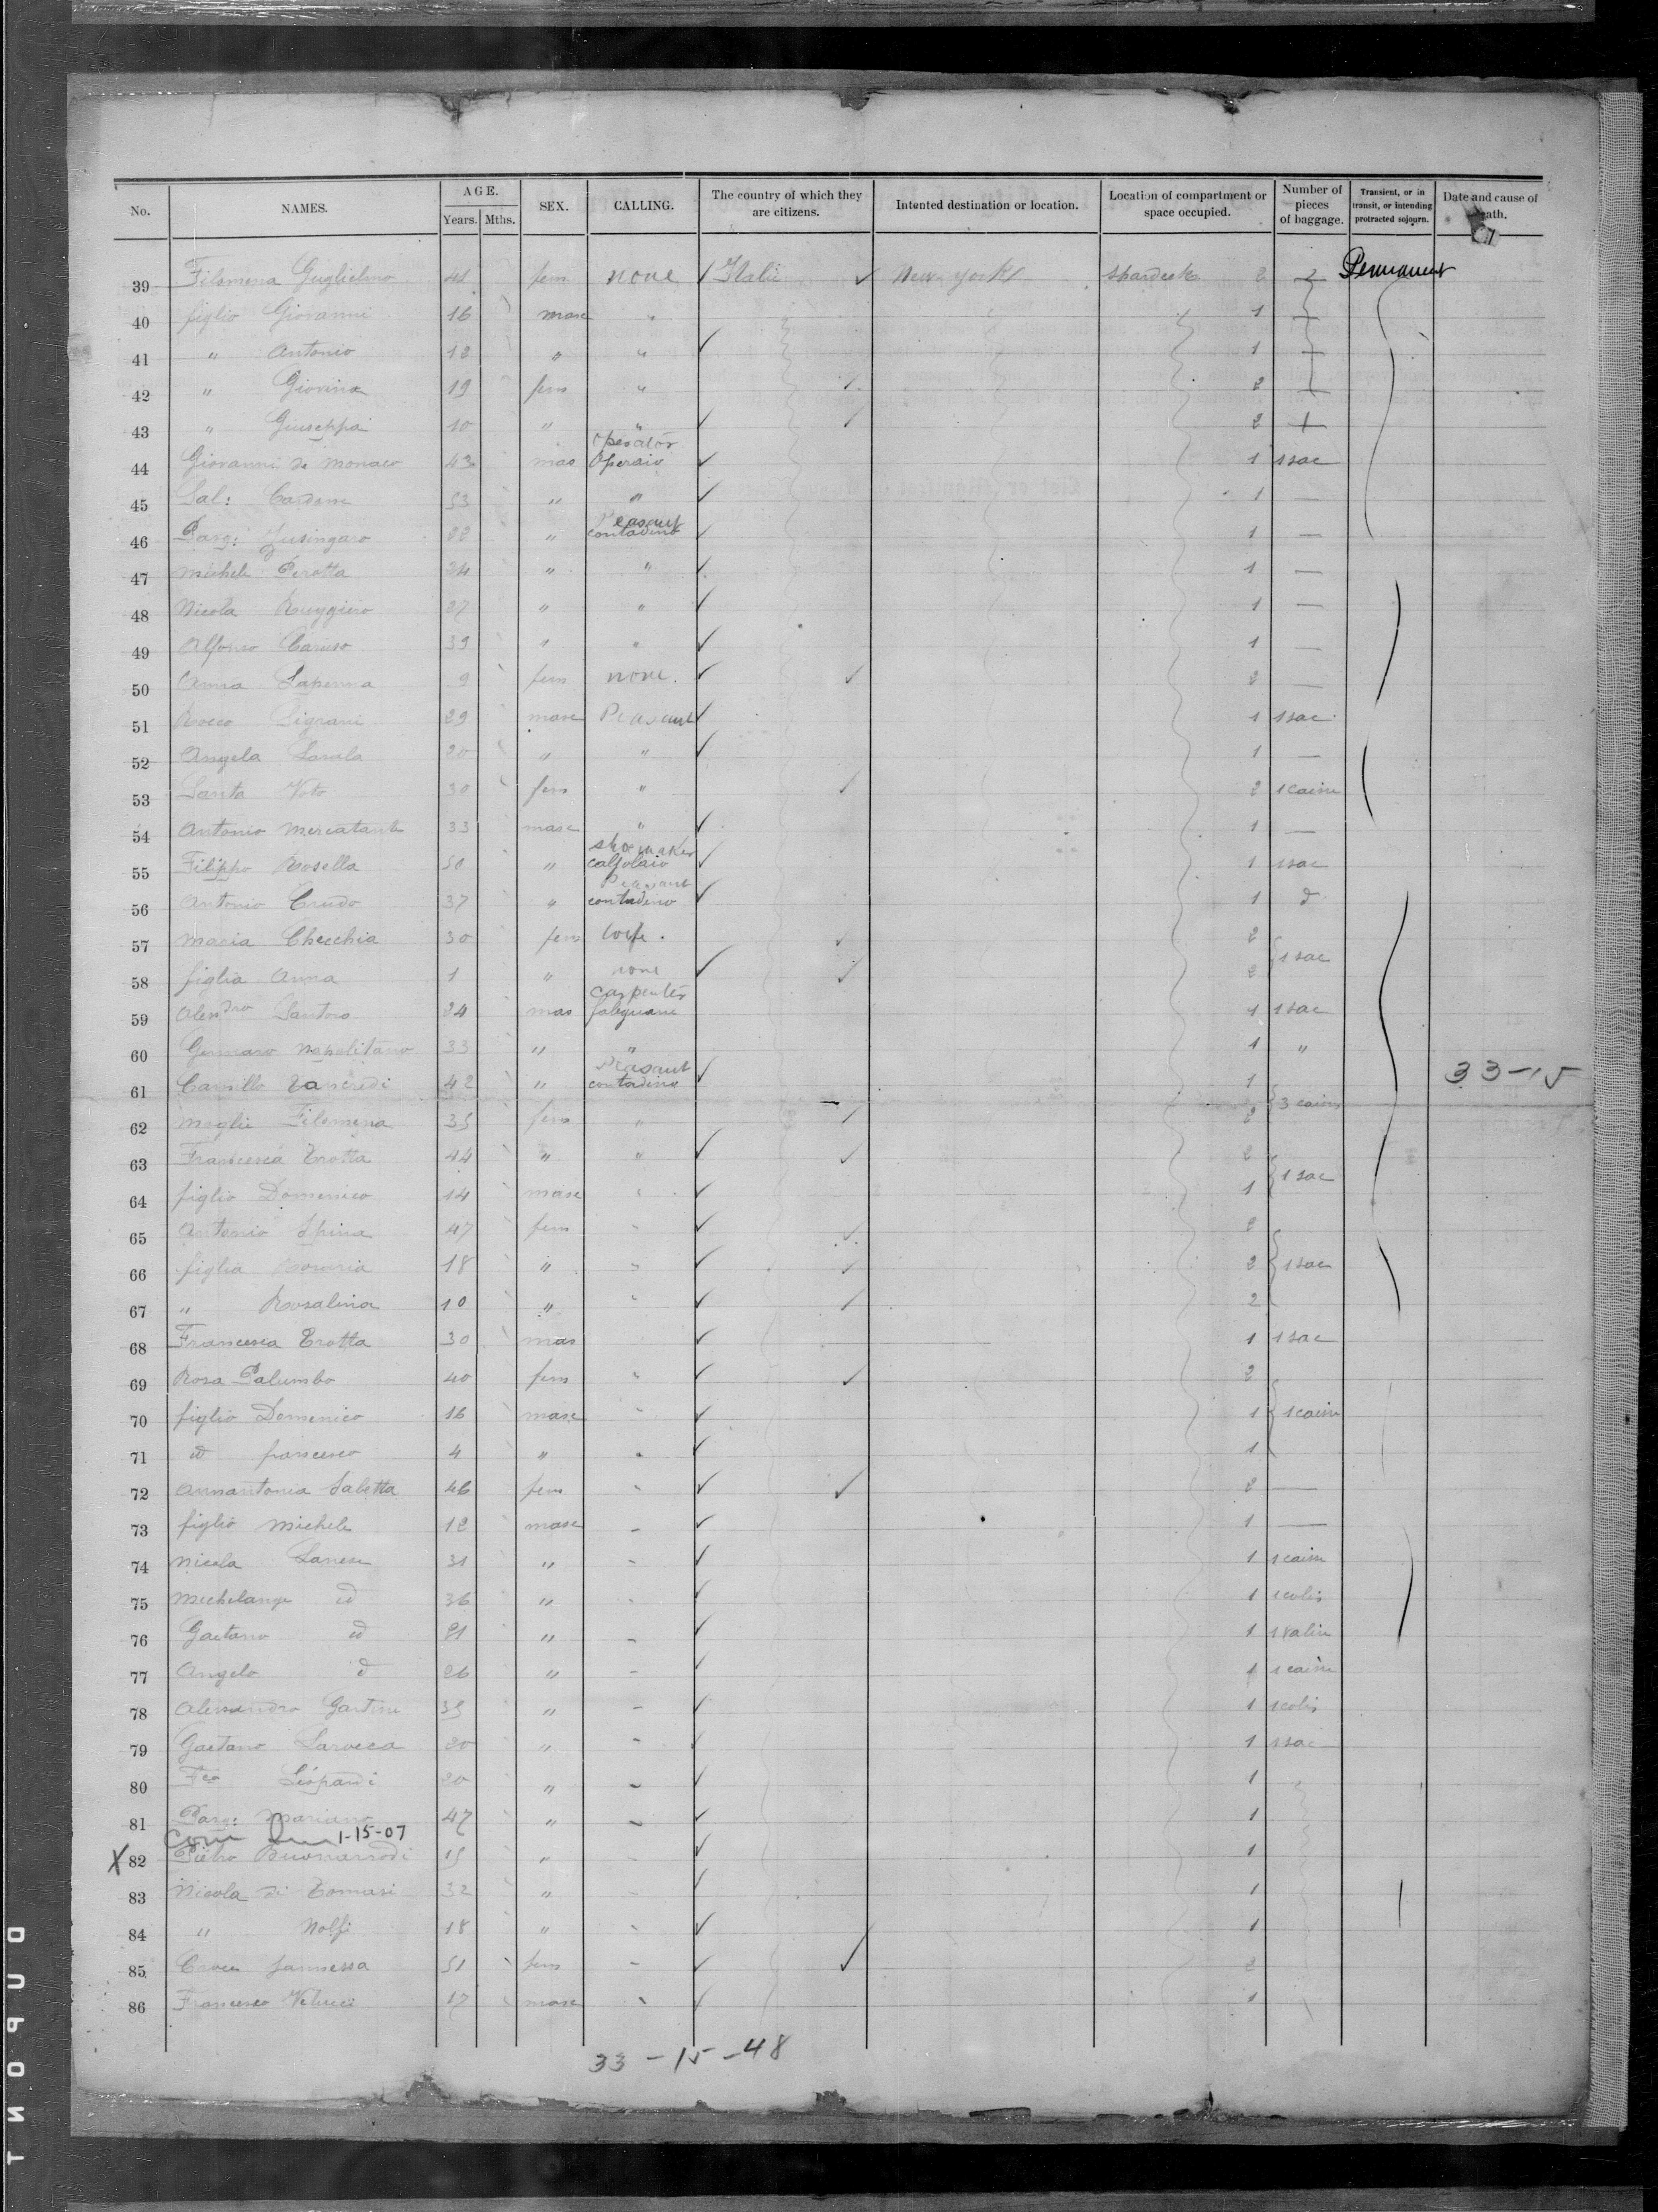 No. NAMES. AGE. Years. Mths. SEX. CALLING. The country of which they are citizens. Intented destination or location. Location of compartment or space occupied. Number of pieces of baggage. Transient, or in transit, or intending protracted sojourn. Date and cause of
39 Filomena Guglielmo 41 fem none Italie New-York 2 2 Permanent
40 figlio Giovanni 16 masc " 1
41 " Antonio 12 " " 1
42 " Giovina 19 fem " 2
43 " Giuseppa 10 " " 2
operator
44 Giovanni de Monaco 43 mas Operaio 1 1 sac
45 Sal: 53 " " 1 —
Peasant
46 22 " contadino 1 —
47 Michele Perotta 24 " " 1 —
48 Nicola Ruggiero 27 " " 1 —
49 Alfonso Caruso 39 " " 1 —
50 Anna Lapenna 9 fem none. 2 —
51 Rocco Sigrani 29 masc Peasant 1 1 sac
52 Angela 20 " " 1 —
53 Santa Voto 30 fem " 2 1 caisse
54 Antonio Mercatante 33 masc " 1 —
shoemaker
55 Filippo Rosella 50 " calzolaio 1 1 sac
Peasant
56 Antonio Crudo 37 " contadino 1 d
57 Maria Checchia 30 fem wife. 2
1 sac
58 figlia Anna 1 " none 2
carpenter
59 Alendro Santoro 24 mas falegname 1 1 sac
60 Gennaro Napolitano 33 " " 1 "
Peasant
61 Camillo Tancredi 42 " contadino 1 33-15
3 caisse
62 Moglie Filomena 35 fem " 2
63 Francesca Trotta 44 " " 2
1 sac
64 figlio Domenico 14 masc " 1
65 Antonio Spina 47 fem " 2
66 figlia 18 " " 2 1 sac
67 " Rosalina 10 " " 2
68 Francesca Trotta 30 mas 1 1 sac
69 Rosa Palumbo 40 fem " 2
70 figlio Domenico 16 masc " 1 1 caisse
71 id francesco 4 " " 1
72 Annantonia Saletta 46 fem " 2 —
73 figlio Michele 12 masc - 1 —
74 Nicola Lanese 31 " - 1 1 caisse
75 Michelange id 36 " - 1 1 colis
76 Gaetano id 21 " - 1 1 valise
77 Angelo d 26 " - 1 1 caisse
78 Alessandro 35 " - 1 1 colis
79 Gaetano Larocca 20 " - 1 1 sac
80 Fco 20 " - 1
81 Mariano 47 " - 1
1-15-07
X 82 Pietro Buonarrodi 15 " - 1
83 Nicola di Tomasi 32 " - 1
84 " Nolfi 18 " - 1
85 Croce Jannessa 51 fem - 2
86 Francesco 17 masc - 1
33-15-48
DUPONT